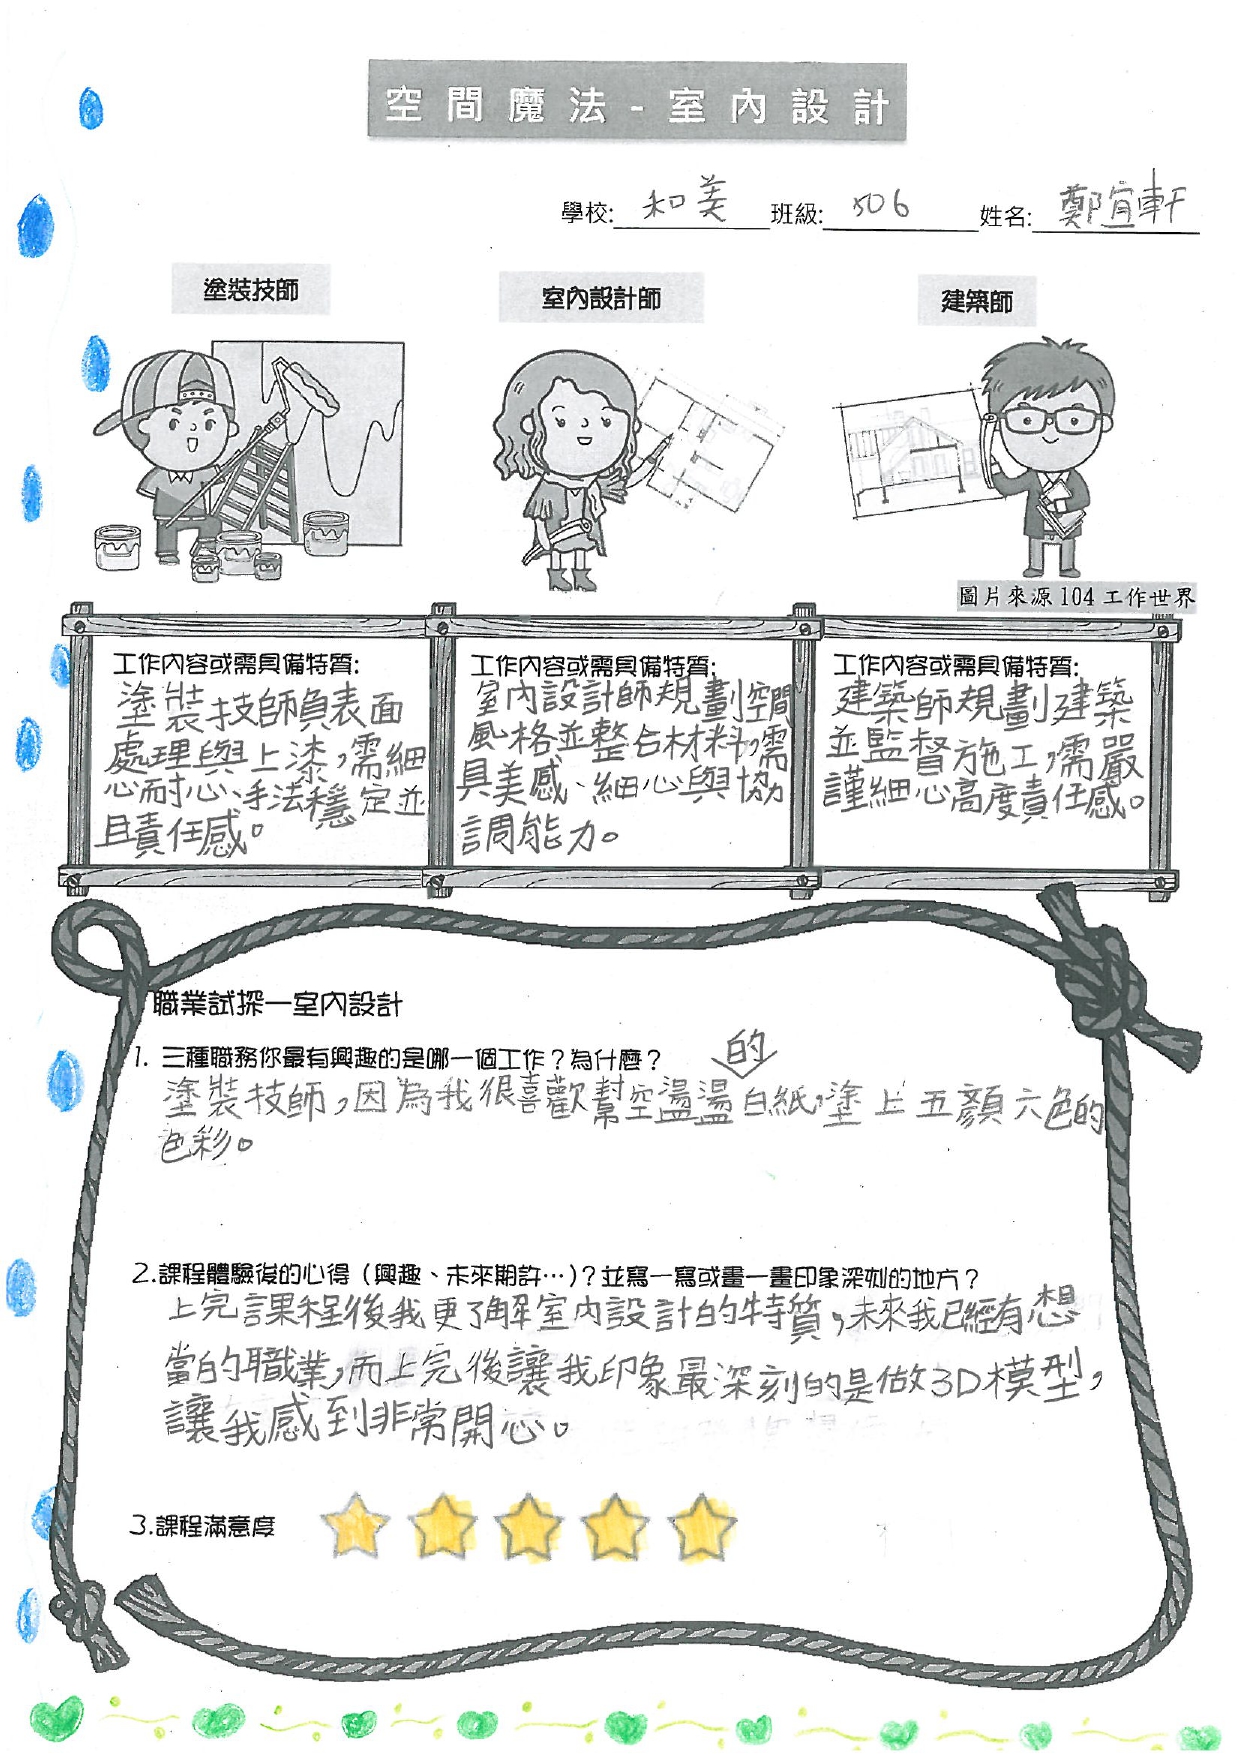 空間魔法-室內設計
學校:和美 班級:506 姓名:鄭宜軒
塗裝技師
室內設計師
建築師
圖片來源104工作世界
工作內容或需具備特質:
塗裝技師負表面
處理與上漆,需細
心耐心、手法穩定並
且責任感。
工作內容或需具備特質:
室內設計師規劃空間
風格並整合材料,需
具美感、細心與協
調能力。
工作內容或需具備特質:
建築師規劃建築
並監督施工,需嚴
謹細心高度責任感。
職業試探—室內設計
1. 三種職務你最有興趣的是哪一個工作？為什麼？
的
塗裝技師,因為我很喜歡幫空盪盪白紙,塗上五顏六色的
色彩。
2.課程體驗後的心得（興趣、未來期許…)？並寫一寫或畫一畫印象深刻的地方？
上完課程後我更了解室內設計的特質,未來我已經有想
當的職業,而上完後讓我印象最深刻的是做3D模型,
讓我感到非常開心。
3.課程滿意度